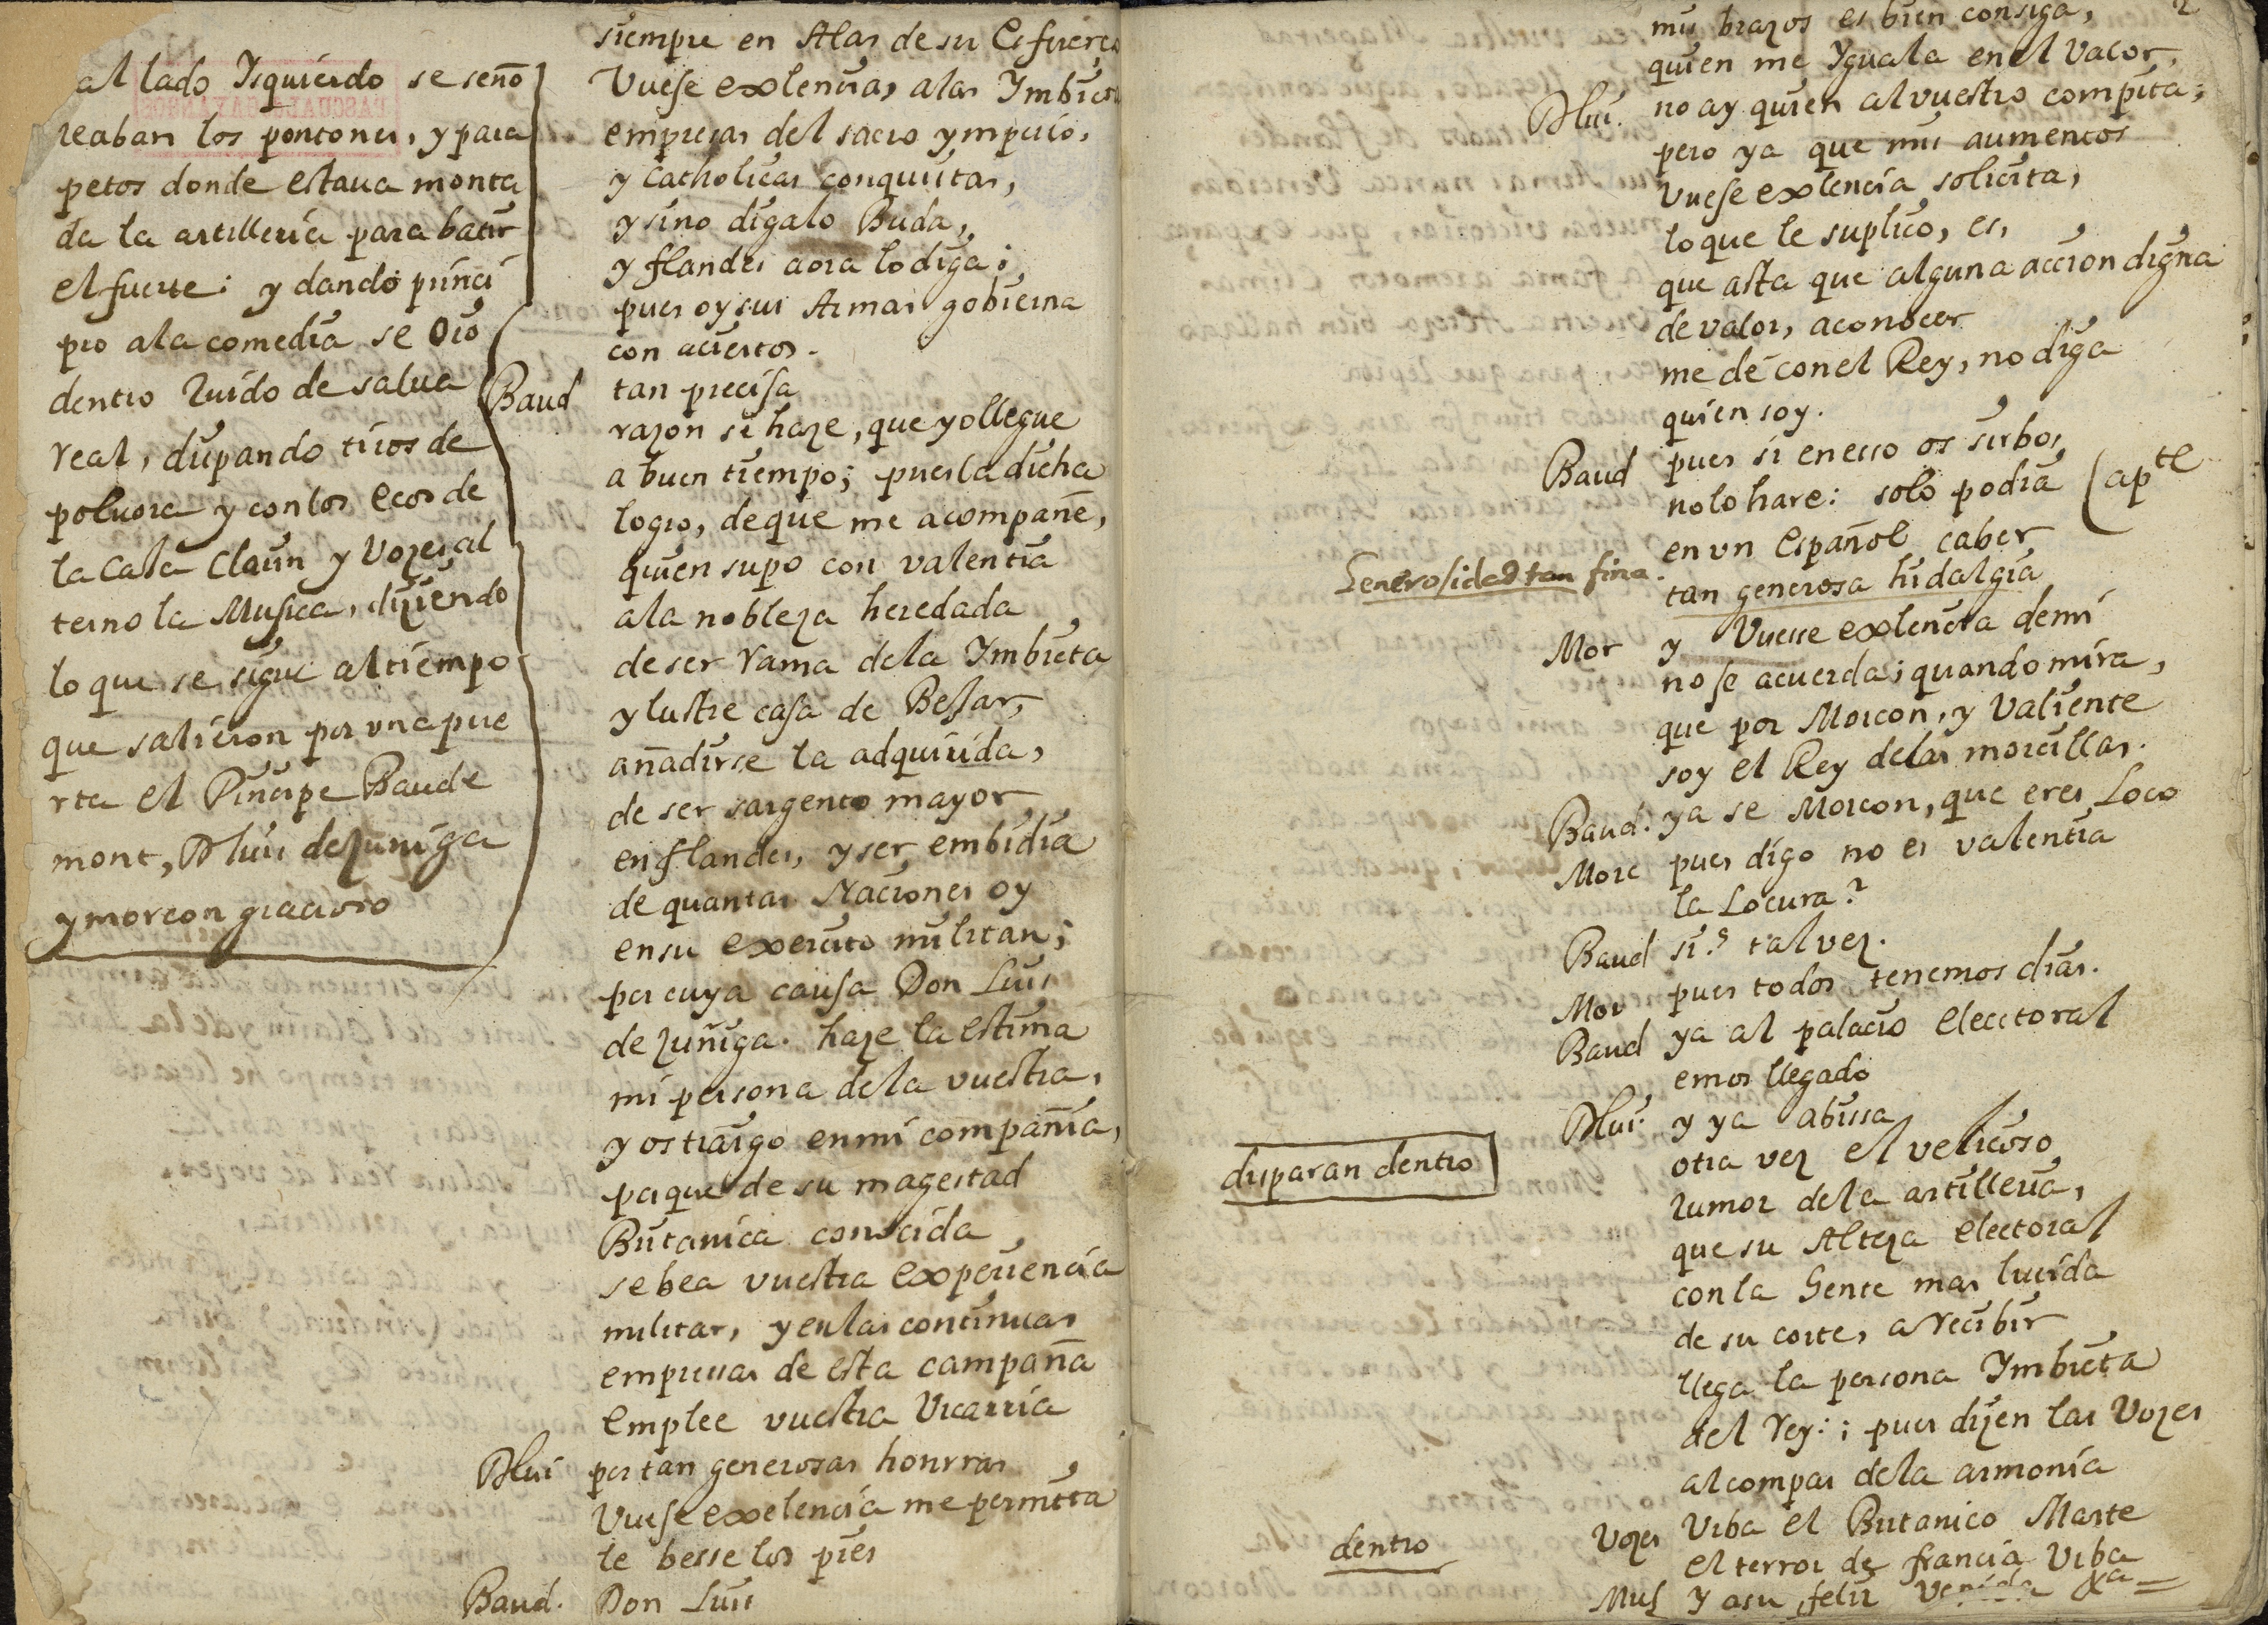 al lado Ysquierdo se seño
reaban los pontones, y para
petos donde estaua monta
da la artilleria para batir
el fuerte: y dando princi
pio ala comedia se oio
dentro Ruido de salua
real, disparando tiros de
poluora y con los ecos de
la Caxa Clarin y Vozes al
terno la Musica, diziendo
lo que se sigue al tiempo
que salieron por vna pue
rta el Principe Baude
mont, D luis dezuniga
y morcon gracioso
siempre en Alas de su Esfuerço
Vuese exlencia, alas Ymbictas
empresas del sacro ymperio,
y catholicas conquistas,
y sino digalo Buda,
y flandes aora lo diga;
pues oy sus Armas gobierna
con aciertos.
Baud tan precisa
razon se haze, que yo llegue
a buen tiempo; pues la dicha
logro, de que me acompañe,
quien supo con valentia
ala nobleza heredada
de ser rama dela Ymbicta
y lustre casa de Bejar,
añadirse la adquirida,
de ser sargento mayor
en flandes, y ser embidia
de quantas Naciones oy
en su exercito militan;
por cuya causa Don Luis
de zuñiga. haze la estima
mi persona dela vuestra,
y os traigo en mi compañia,
porque de su magestad
Britanica conocida
se bea vuestra experiencia
militar, y en las continuas
empressas de esta campaña
emplee vuestra Vicarria
Dlui por tan generosas honrras
Vuese exelencia me permita
le besse los pies
Baud. Don Luis
2
mis brazos es bien consiga,
quien me Yguala en el Valor.
Dlui. no ay quien al vuestro compita;
pero ya que mis aumentos
Vuese exlencia solicita,
lo que le suplico, es,
que asta que alguna accion digna
de valor, aconocer
me dé con el Rey, no diga
quien soy.
Baud pues si en esso os sirbo,
no lo hare: solo podia (ap^te
en vn Español caber
Generosidad tan fina.
tan generosa hidalgia
Mor y Vuesse exlencia demi
no se acuerda; quando mira,
que por Morcon, y Valiente
soy el Rey delas morcillas.
Baud. ya se Morcon, que eres Loco
Morc pues digo no es valentia
la Locura?
Baud si.? tal vez.
Mor pues todos tenemos dias.
Baud ya al palacio Electoral
emos llegado
Dlui. y ya abissa
disparan dentro
otra vez el velicoso
rumor dela artilleria,
que su Alteza electoral
con la Gente mas lucida
de su corte, a recibir
llega la persona Ymbicta
del rey: ; pues dizen las Vozes
al compas dela armonia
dentro
Vozes Viba el Britanico Marte
el terror de francia Viba
Mus Y a su feliz Venida &^a =